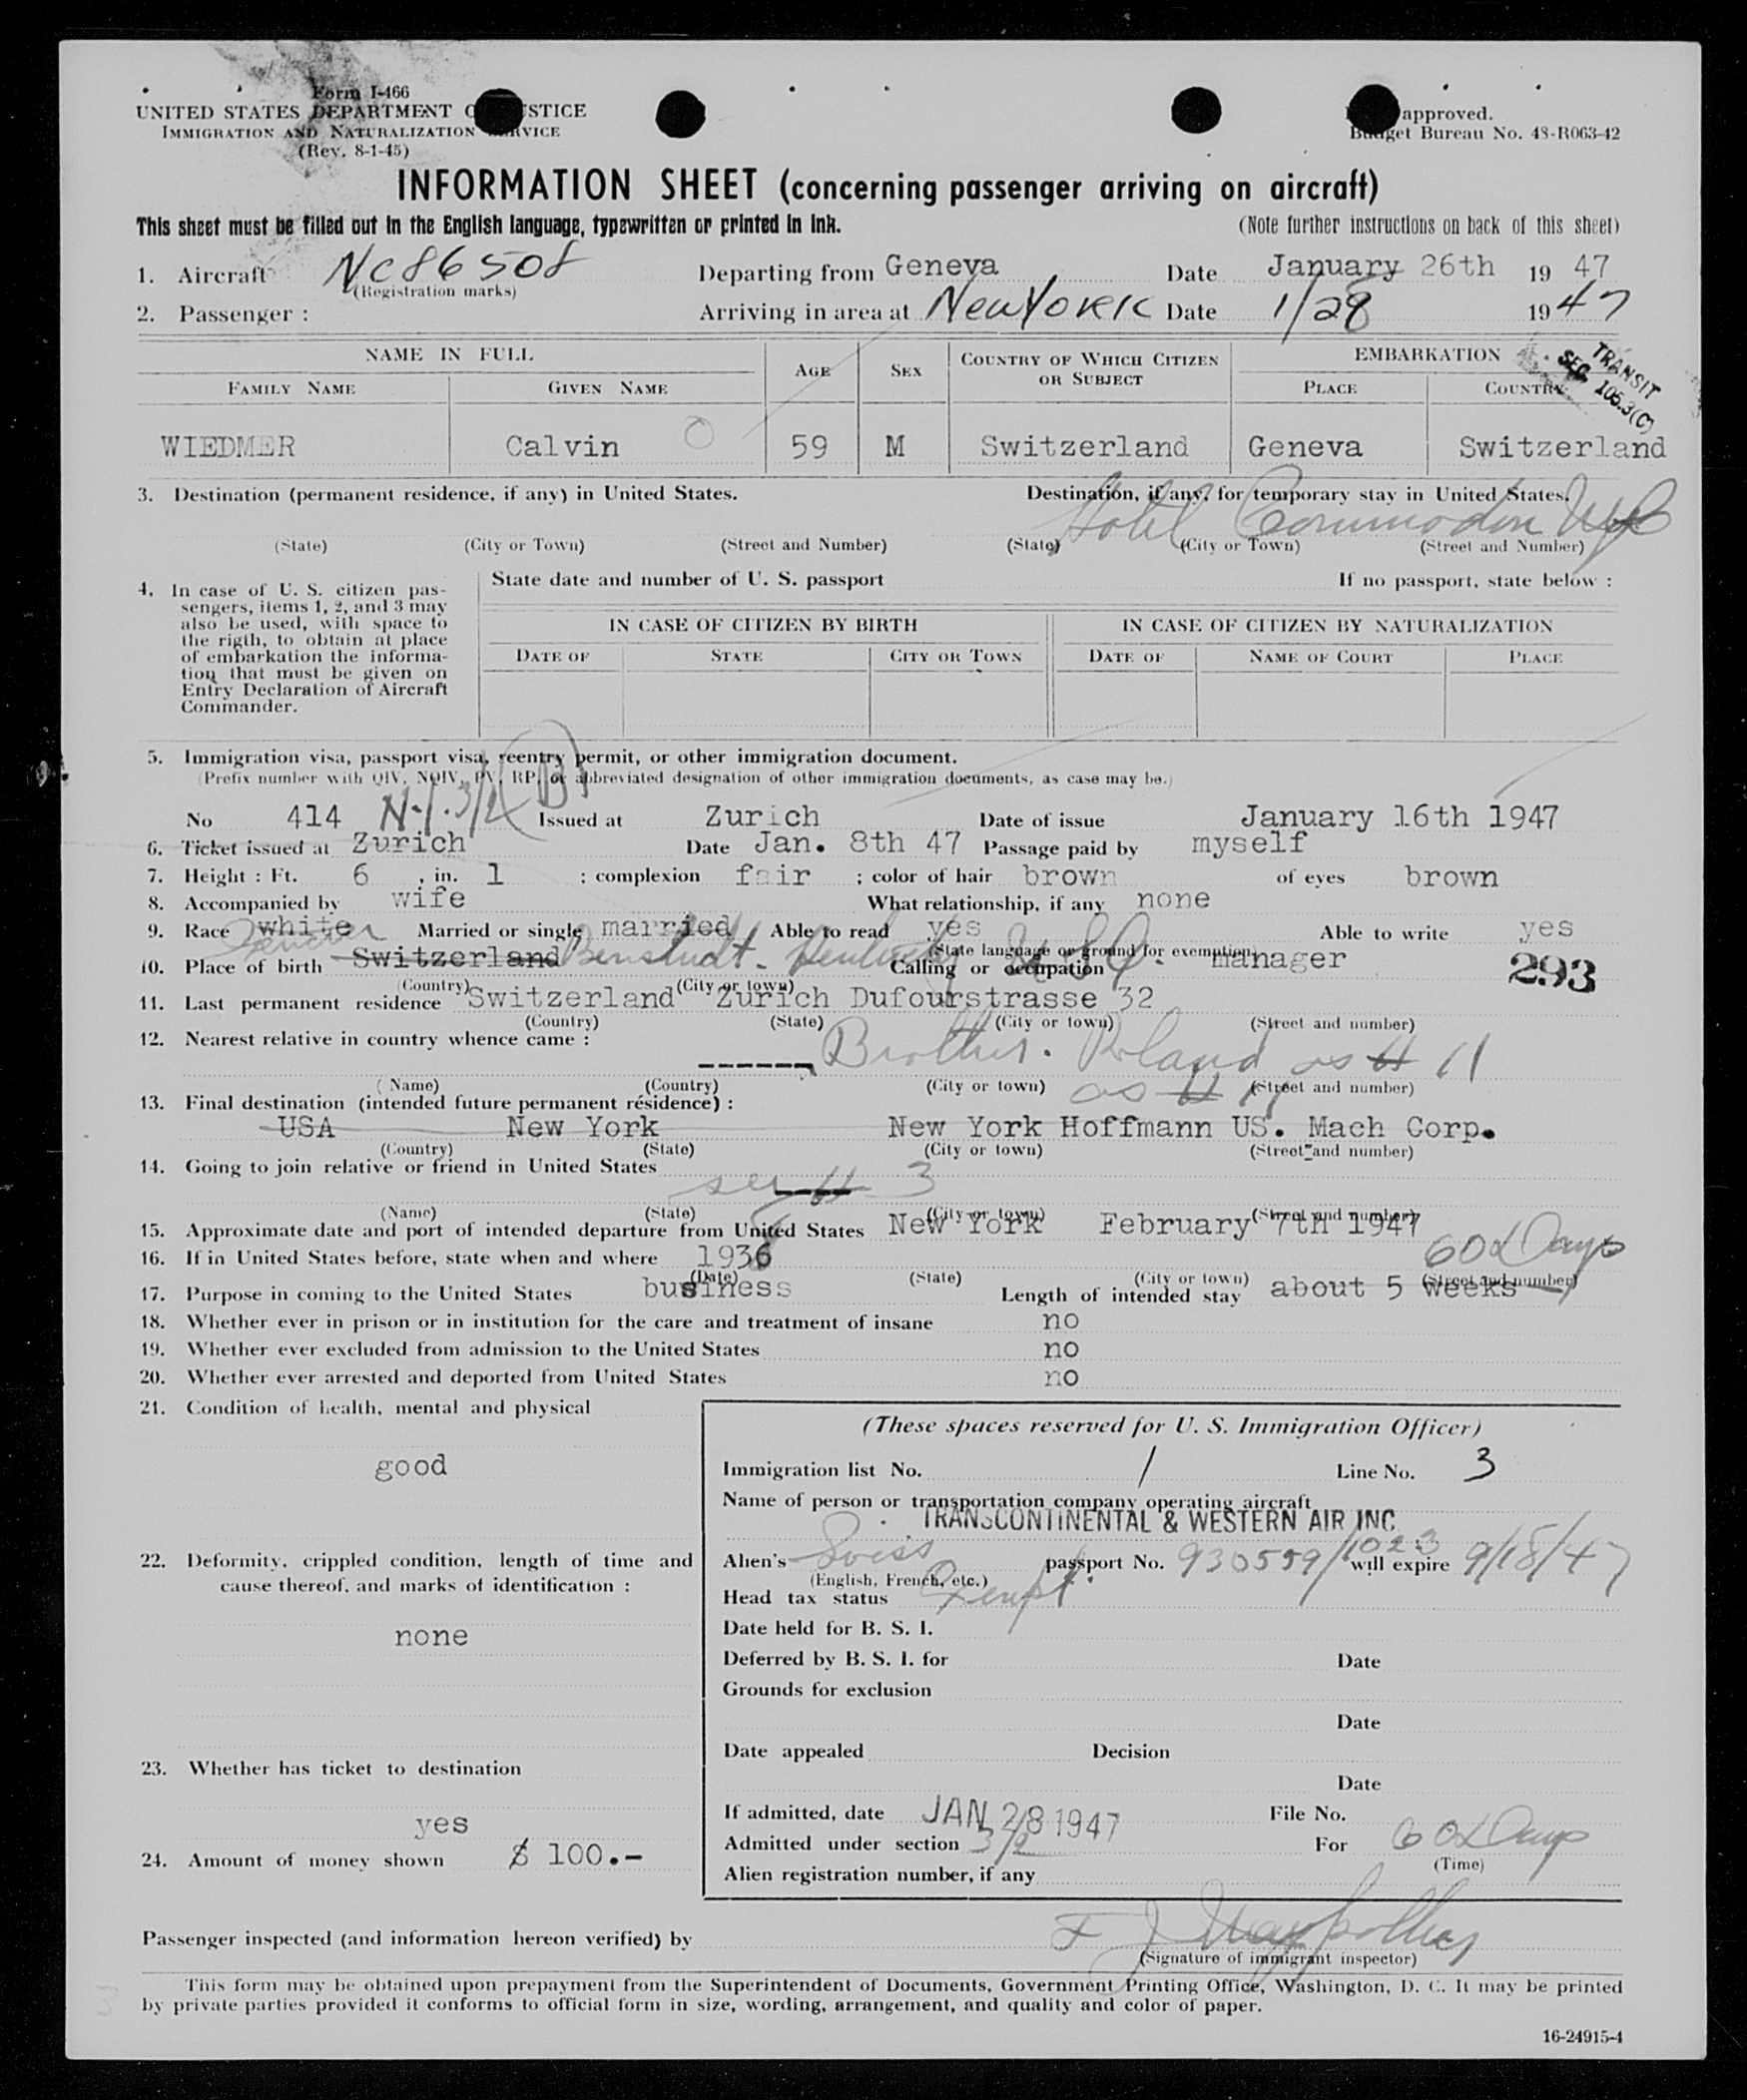 Form I-466
UNITED STATES DEPARTMENT STICE
IMMIGRATION AND NATURALIZATION RVICE
(Rev. 8-1-45)
approved.
Budget Bureau No. 43-R063-42
INFORMATION SHEET (concerning passenger arriving on aircraft)
This sheet must be filled out in the English language, typewritten or printed in ink. (Note further instructions on back of this sheet)
1. Aircraft NC86508 Departing from Geneva Date January 26th 19 47
(Registration marks)
2. Passenger : Arriving in area at New York Date 1/28 19 47
TRANSIT
SEC. 105.3(C)
NAME IN FULL AGE SEX COUNTRY OF WHICH CITIZEN OR SUBJECT EMBARKATION
FAMILY NAME GIVEN NAME PLACE COUNTRY
WIEDMER Calvin O 59 M Switzerland Geneva Switzerland
3. Destination (permanent residence, if any) in United States. Destination, if any, for temporary stay in United States.
Hotel Commodore NYC
(State) (City or Town) (Street and Number) (State) (City or Town) (Street and Number)
4. In case of U. S. citizen pas-
sengers, items 1, 2, and 3 may
also be used, with space to
the rigth, to obtain at place
of embarkation the informa-
tion that must be given on
Entry Declaration of Aircraft
Commander.
State date and number of U. S. passport If no passport, state below :
IN CASE OF CITIZEN BY BIRTH IN CASE OF CITIZEN BY NATURALIZATION
DATE OF STATE CITY OR TOWN DATE OF NAME OF COURT PLACE
5. Immigration visa, passport visa, reentry permit, or other immigration document.
(Prefix number with QIV, NQIV, PV, RP, or abbreviated designation of other immigration documents, as case may be.)
No 414 N-1. 3/2 (B) Issued at Zurich Date of issue January 16th 1947
6. Ticket issued at Zurich Date Jan. 8th 47 Passage paid by myself
7. Height : Ft. 6 , in. 1 ; complexion fair ; color of hair brown of eyes brown
8. Accompanied by wife What relationship, if any none
9. Race white Married or single married Able to read yes Able to write yes
(State language or ground for exemption)
10. Place of birth Switzerland Calling or occupation manager 293
(Country) (City or town)
11. Last permanent residence Switzerland Zurich Dufourstrasse 32
(Country) (State) (City or town) (Street and number)
12. Nearest relative in country whence came :
------ Brother. Roland as # 11
(Name) (Country) (City or town) (Street and number)
13. Final destination (intended future permanent résidence) : as # 11
USA New York New York Hoffmann US. Mach Corp.
(Country) (State) (City or town) (Street and number)
14. Going to join relative or friend in United States
see # 3
(Name) (State) (City or town) (Street and number)
15. Approximate date and port of intended departure from United States New York February 7th 1947
16. If in United States before, state when and where 1936 60 Days
(Date) (State) (City or town) (Street and number)
17. Purpose in coming to the United States business Length of intended stay about 5 weeks
18. Whether ever in prison or in institution for the care and treatment of insane no
19. Whether ever excluded from admission to the United States no
20. Whether ever arrested and deported from United States no
21. Condition of health, mental and physical
good
22. Deformity, crippled condition, length of time and
cause thereof, and marks of identification :
none
23. Whether has ticket to destination
yes
24. Amount of money shown $ 100.-
(These spaces reserved for U. S. Immigration Officer)
Immigration list No. 1 Line No. 3
Name of person or transportation company operating aircraft
TRANSCONTINENTAL & WESTERN AIR INC
Alien's Swiss passport No. 930559/1023 will expire 9/18/47
(English, French, etc.)
Head tax status Exempt.
Date held for B. S. I.
Deferred by B. S. I. for Date
Grounds for exclusion
Date
Date appealed Decision
Date
If admitted, date JAN 28 1947 File No.
Admitted under section 3/2 For 60 Days
(Time)
Alien registration number, if any
Passenger inspected (and information hereon verified) by F J
(Signature of immigrant inspector)
This form may be obtained upon prepayment from the Superintendent of Documents, Government Printing Office, Washington, D. C. It may be printed
by private parties provided it conforms to official form in size, wording, arrangement, and quality and color of paper.
16-24915-4